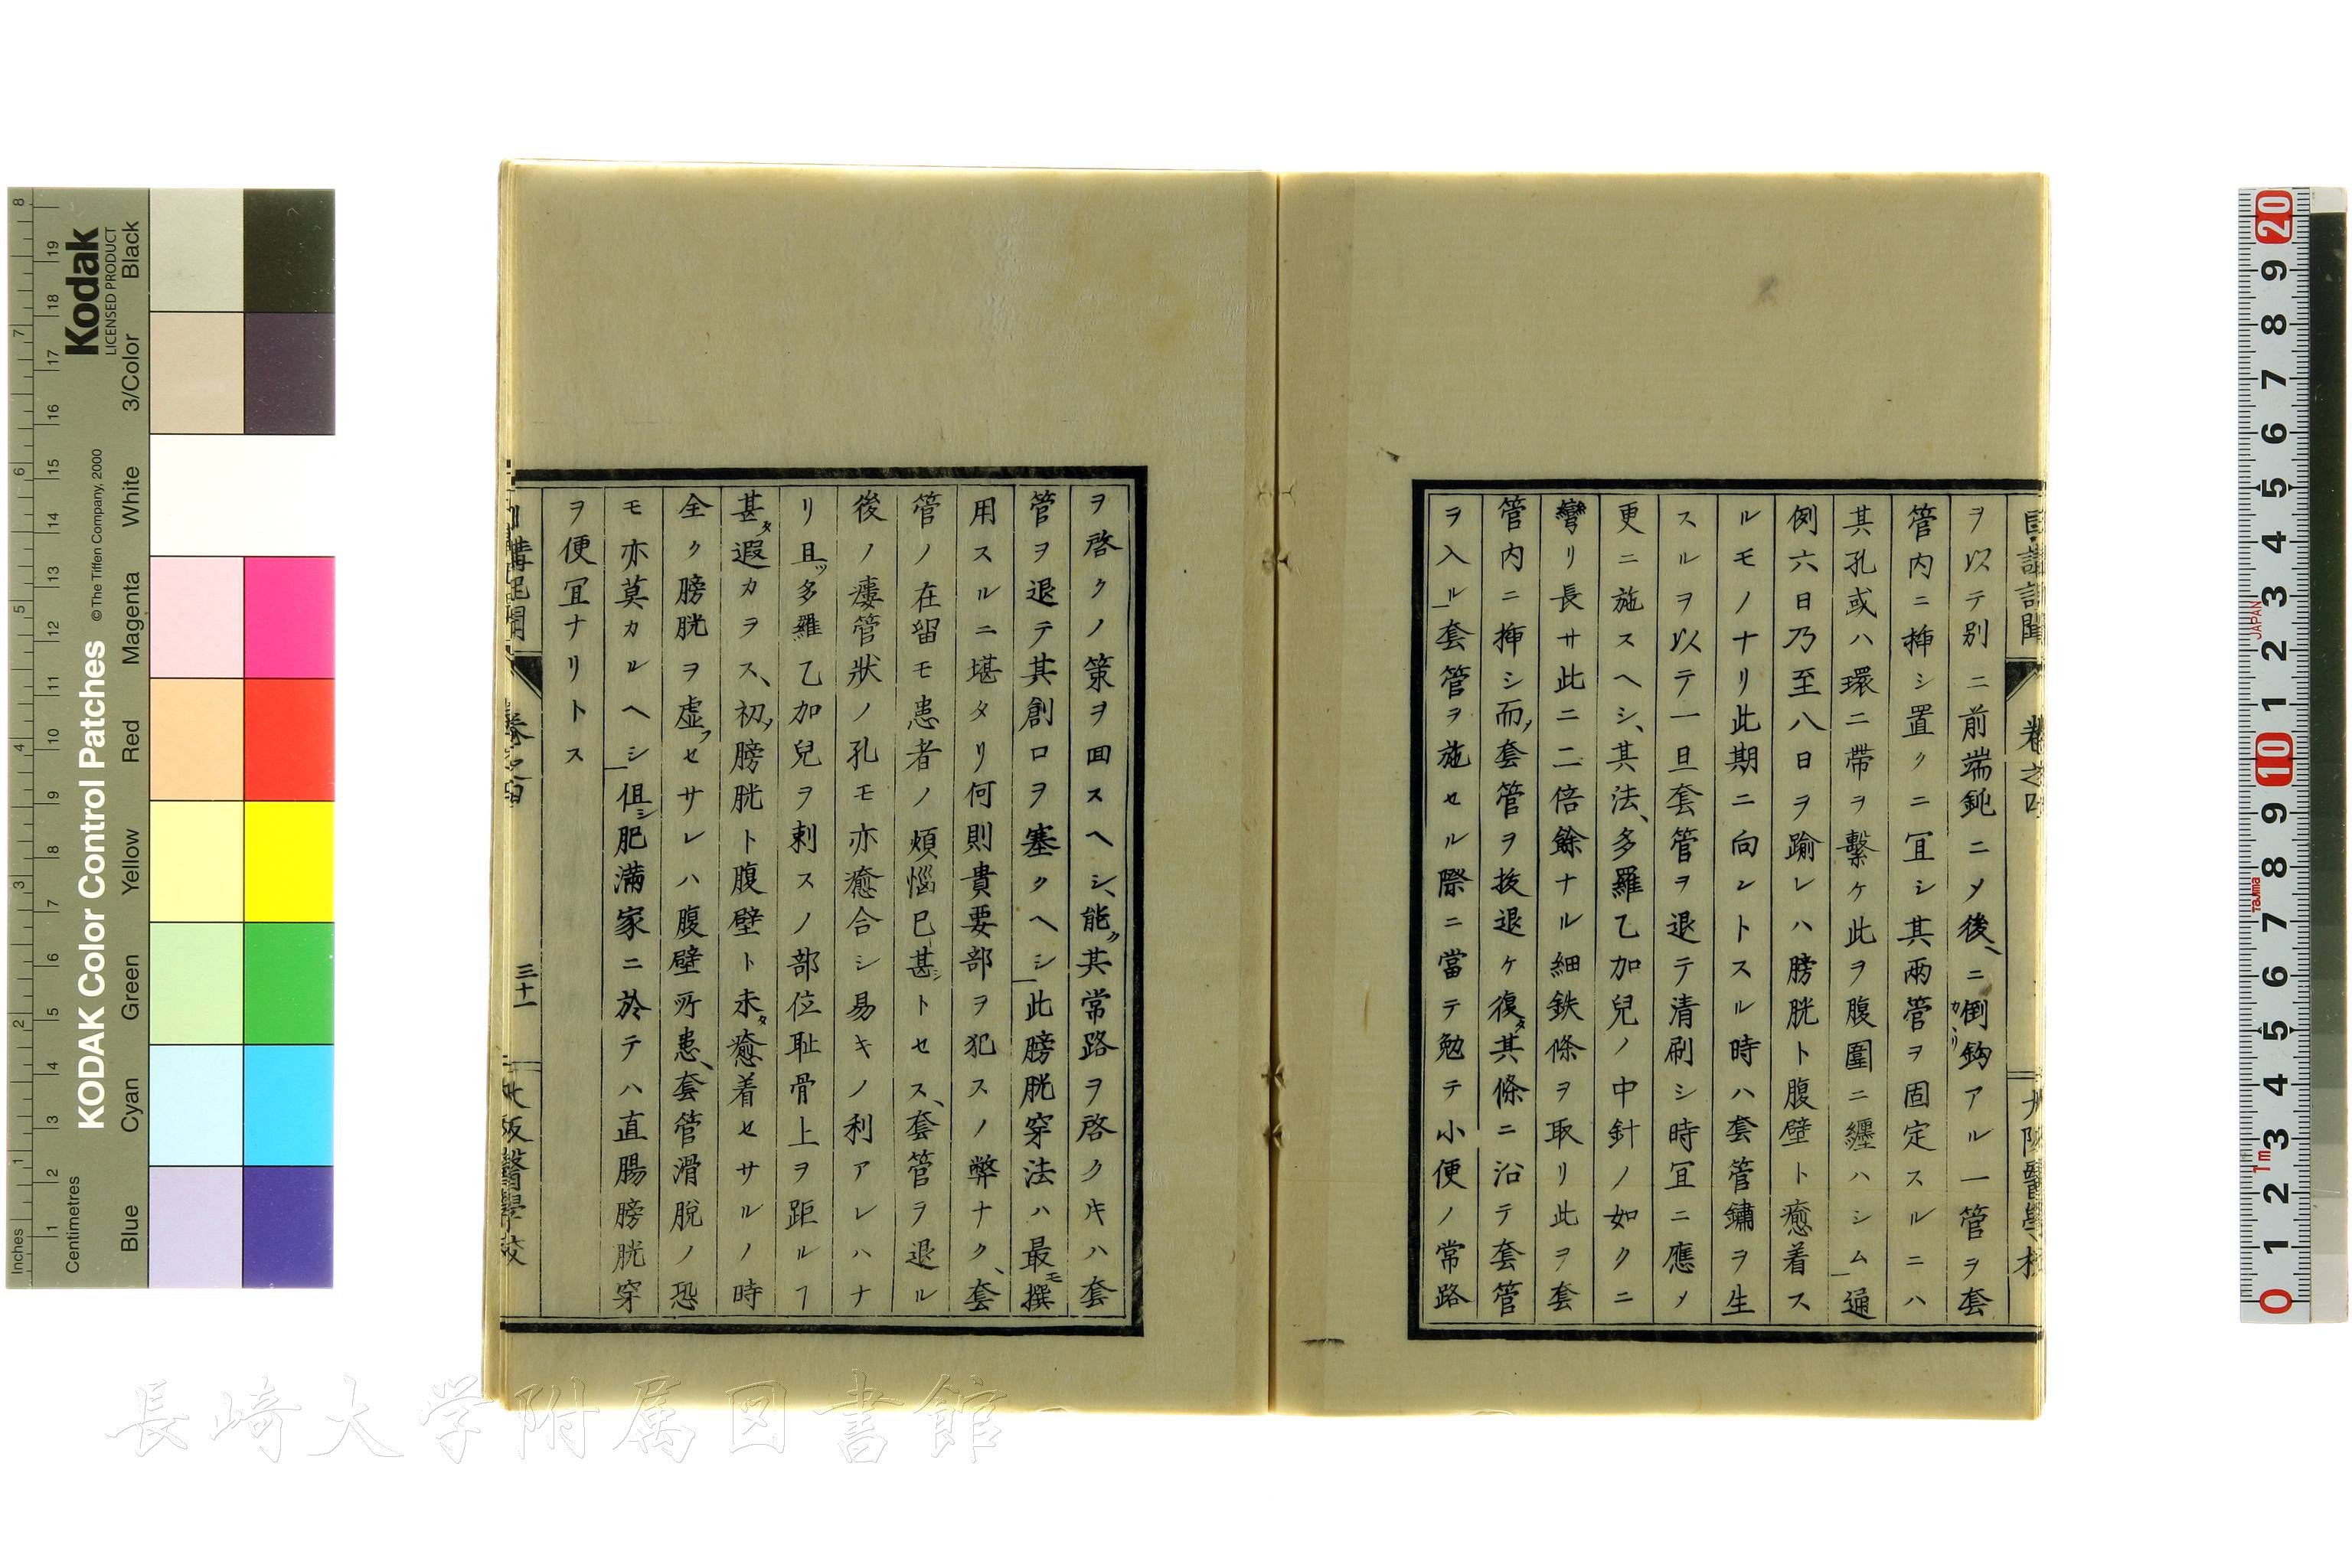 ヲ以テ別ニ前端鈍ニメ後ニ倒鈎アル一管ヲ套
管内ニ挿シ置クニ宜シ其兩管ヲ固定スルニハ
其孔或ハ環ニ帯ヲ繫ケ此ヲ腹圍ニ纒ハシム通
例六日乃至八日ヲ踰レハ膀胱ト腹壁ト癒着ス
ルモノナリ此期ニ向ントスル時ハ套管鏽ヲ生
スルヲ以テ一旦套管ヲ退テ清刷シ時宜ニ應メ
更ニ施スヘシ、其法、多羅乙加兒ノ中針ノ如クニ
彎リ長サ此ニ二倍餘ナル細鉄條ヲ取リ此ヲ套
管内ニ挿シ而套管ヲ抜退ケ復タ其條ニ沿テ套管
ヲ入ル套管ヲ施セル際ニ當テ勉テ小便ノ常路
ヲ啓クノ策ヲ回スヘシ、能ク其常路ヲ啓クキハ套
管ヲ退テ其創口ヲ塞クヘシ此膀胱穿法ハ最モ撰
用スルニ堪タリ何則貴要部ヲ犯スノ弊ナク、套
管ノ在留モ患者ノ煩惱已甚シトセス、套管ヲ退ル
後ノ瘻管狀ノ孔モ亦癒合シ易キノ利アレハナ
リ且ツ多羅乙加兒ヲ刺スノ部位耻骨上ヲ距ルヿ
甚タ遐カラス、初メ膀胱ト腹壁ト未タ癒着セサルノ時
全ク膀胱ヲ虚フセサレハ腹壁所患、套管滑脫ノ恐
モ亦莫カルヘシ但シ肥滿家ニ於テハ直腸膀胱穿
ヲ便宜ナリトス
卷之四
三十一
大阪醫學校
KODAK Color Control Patches
Kodak
LICENSED PRODUCT
© The Tiffen Company, 2000
Inches
Centimetres
Blue Cyan Green Yellow Red Magenta White 3/Color Black
長崎大学附属図書館
JAPAN
Tajima
1m